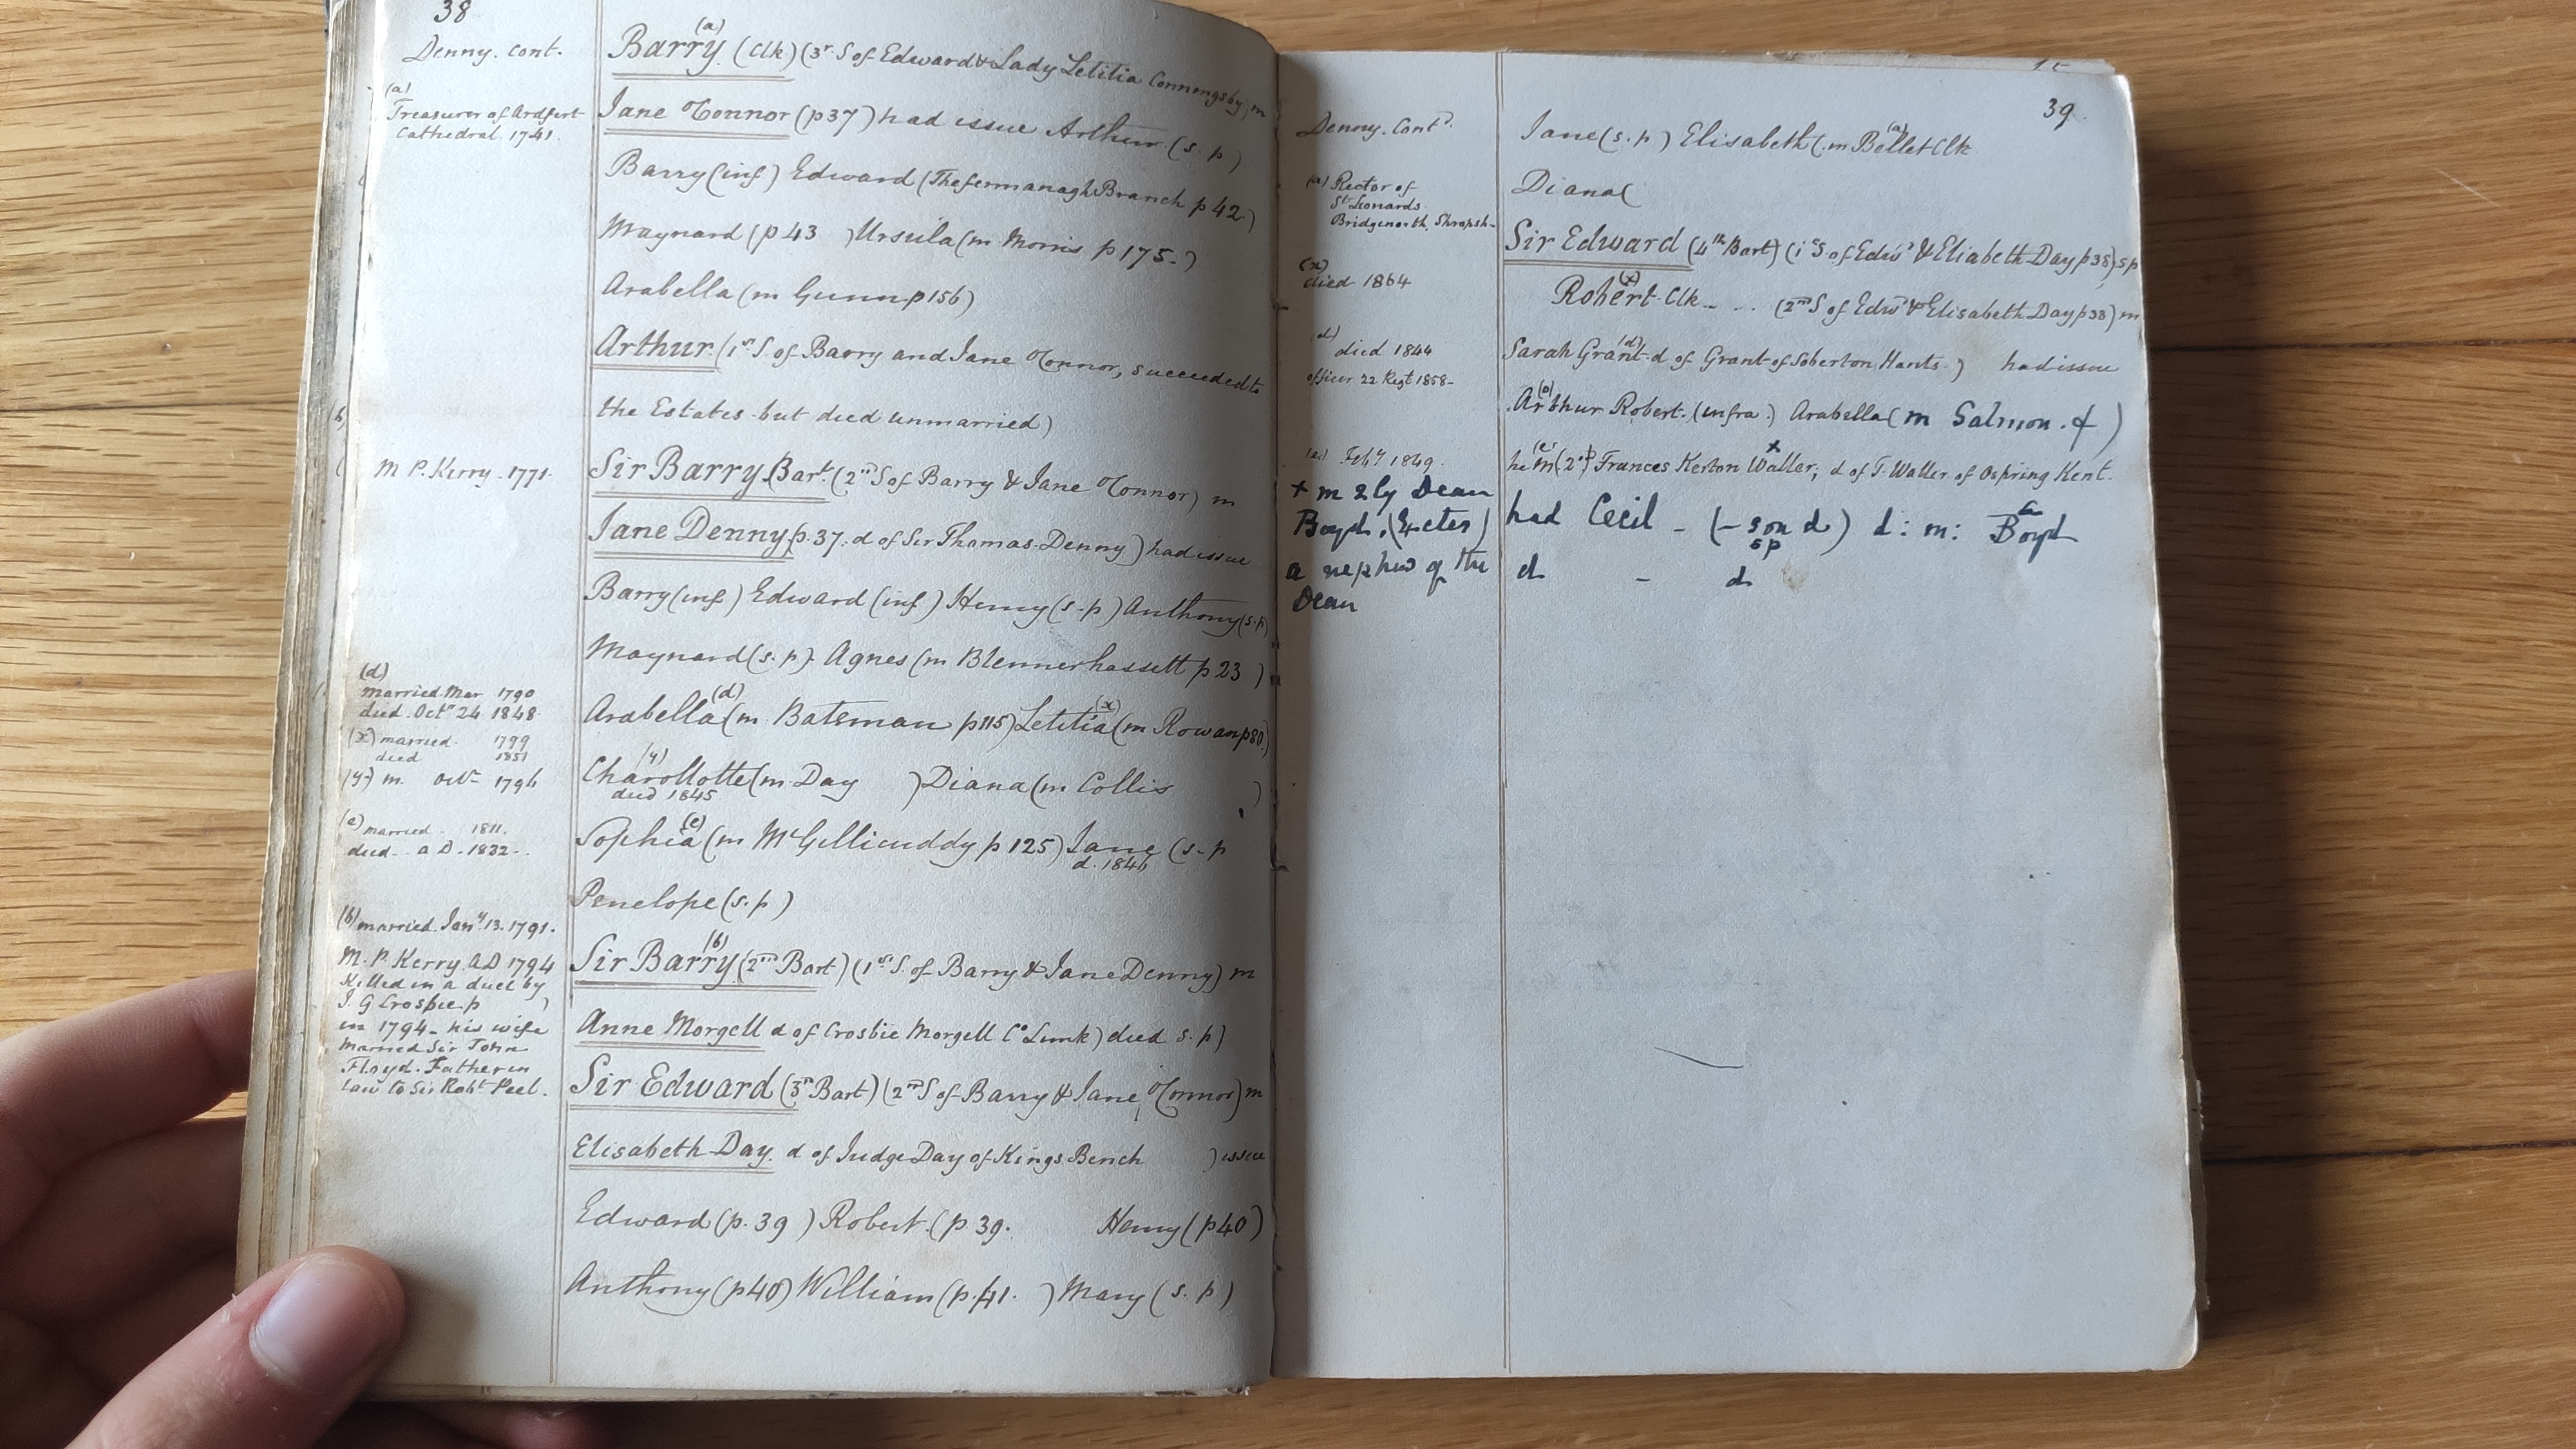 38
Denny. Cont.
(a)
Treasurer of Ardfert
Cathedral. 1741.
M P. Kerry. 1771.
(d)
married. Mar 1790
died. Octr 24 1848.
(x) married. 1799
died 1851
(y) m. Octr 1796
(e) married. 1811.
died. a D. 1832.
(b) married. Jany 13. 1791.
M. P. Kerry. AD 1794
Killed in a duel by
J. G Crosbie. p )
in 1794 - his wife
married Sir John
Floyd. Father in
law to Sir Robt Peel.
(a)
Barry. (Clk) (3r S of Edward & Lady Letitia Conningsby) m
Jane O'Connor (p 37) had issue Arthur (s. p)
Barry (inf) Edward (The Fermanagh Branch p 42)
Maynard (p 43 ) Ursula (m Morris p 175-)
Arabella (m Gunn p 156)
Arthur. (1st S. of Barry and Jane O'Connor, succeeded to
the Estates but died unmarried)
Sir Barry. Bart. (2nd S of Barry & Jane O'Connor) m
Jane Denny p. 37. d of Sir Thomas Denny) had issue
Barry (inf) Edward (inf) Henry (s. p) Anthony (s. p)
Maynard (s. p) Agnes (m Blennerhassett p 23 )
Arabella (d) (m Bateman p 115) Letitia (x) (m Rowan p 80)
(y)
Charollotte (m Day ) Diana (m Collis )
died 1845
Sophia (e) (m McGillicuddy p 125) Jane (s. p
d. 1846
Penelope (s. p)
(b)
Sir Barry (2nd Bart) (1st S. of Barry & Jane Denny) m
Anne Morgell d of Crosbie Morgell Co Limk) died s. p)
Sir Edward (3rd Bart) (2nd S of Barry & Jane O'Connor) m
Elisabeth Day. d of Judge Day of Kings Bench ) issue
Edward (p. 39 ) Robert. (p 39. Henry (p 40)
Anthony (p 40) William (p. 41. ) Mary (s. p)
39.
Denny. Contd.
(a) Rector of
St Leonards
Bridgenorth, Shropsh-
(x)
died 1864
(d)
died 1844
officer 22 Regt 1858-
Feby 1849.
+ m 2ly Dean
Boyd, (Exeter)
a nephew of the
Dean
Jane (s. p) Elisabeth (m Bellet (a) Clk
Diana (
Sir Edward (4th Bart) (1st S of Edwd & Eliabeth Day p 38) s p
Robert (x) Clk - .. (2nd S of Edwd & Elisabeth Day p 38) m
Sarah Grant (d) d of Grant of Soberton Hants.) had issue
Arthur Robert. (infra.) Arabella (m Salmon. & )
he m (2nd) Frances Kerton Waller, + d of T. Waller of Ospring Kent.
had Cecil - (- son d) d: m: a Boyd
sp
d - d